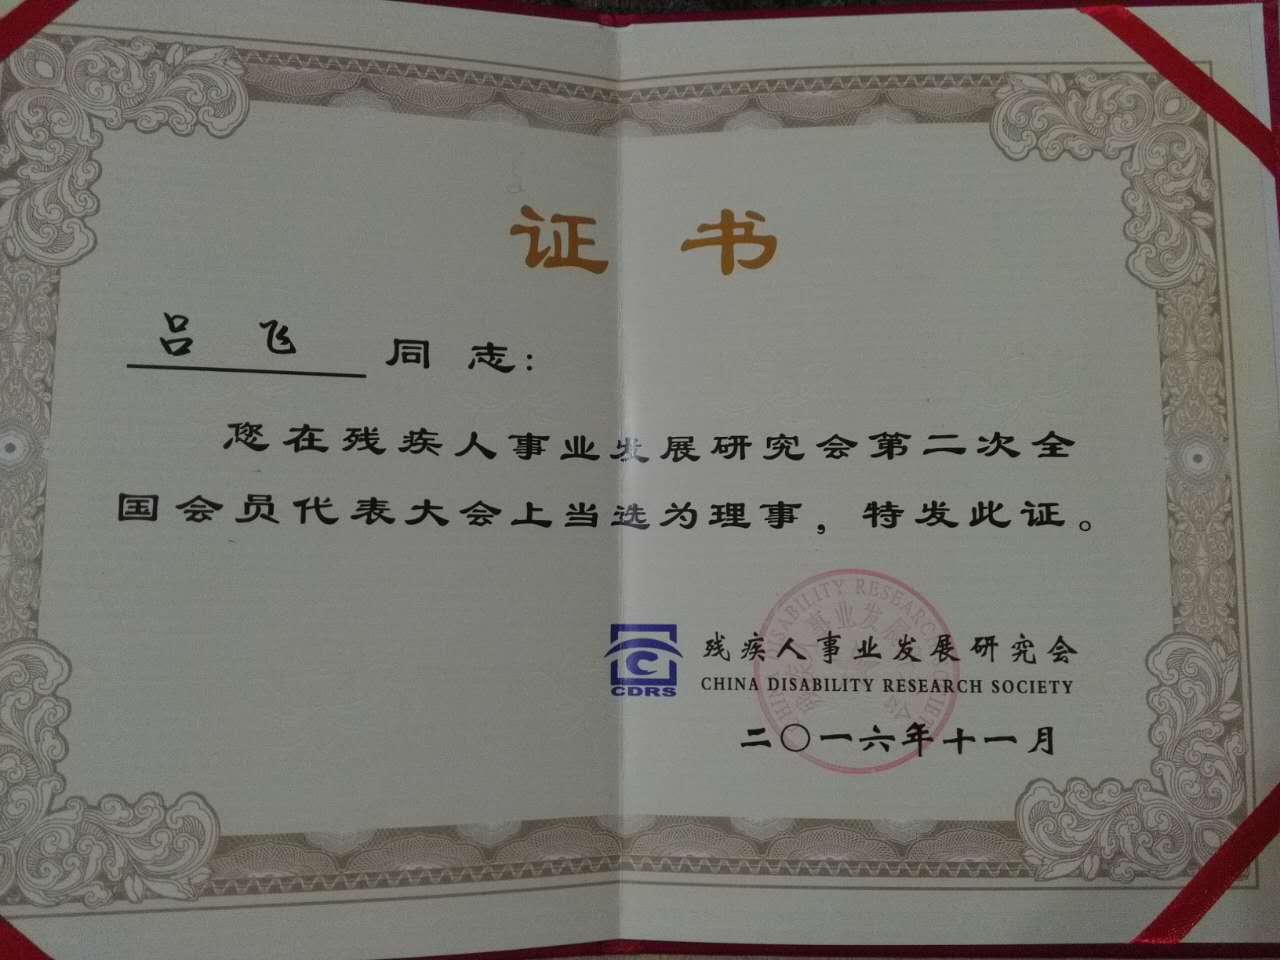 证书
吕飞 同志：
您在残疾人事业发展研究会第二次全
国会员代表大会上当选为理事，特发此证。
CDRS
残疾人事业发展研究会
CHINA DISABILITY RESEARCH SOCIETY
二〇一六年十一月